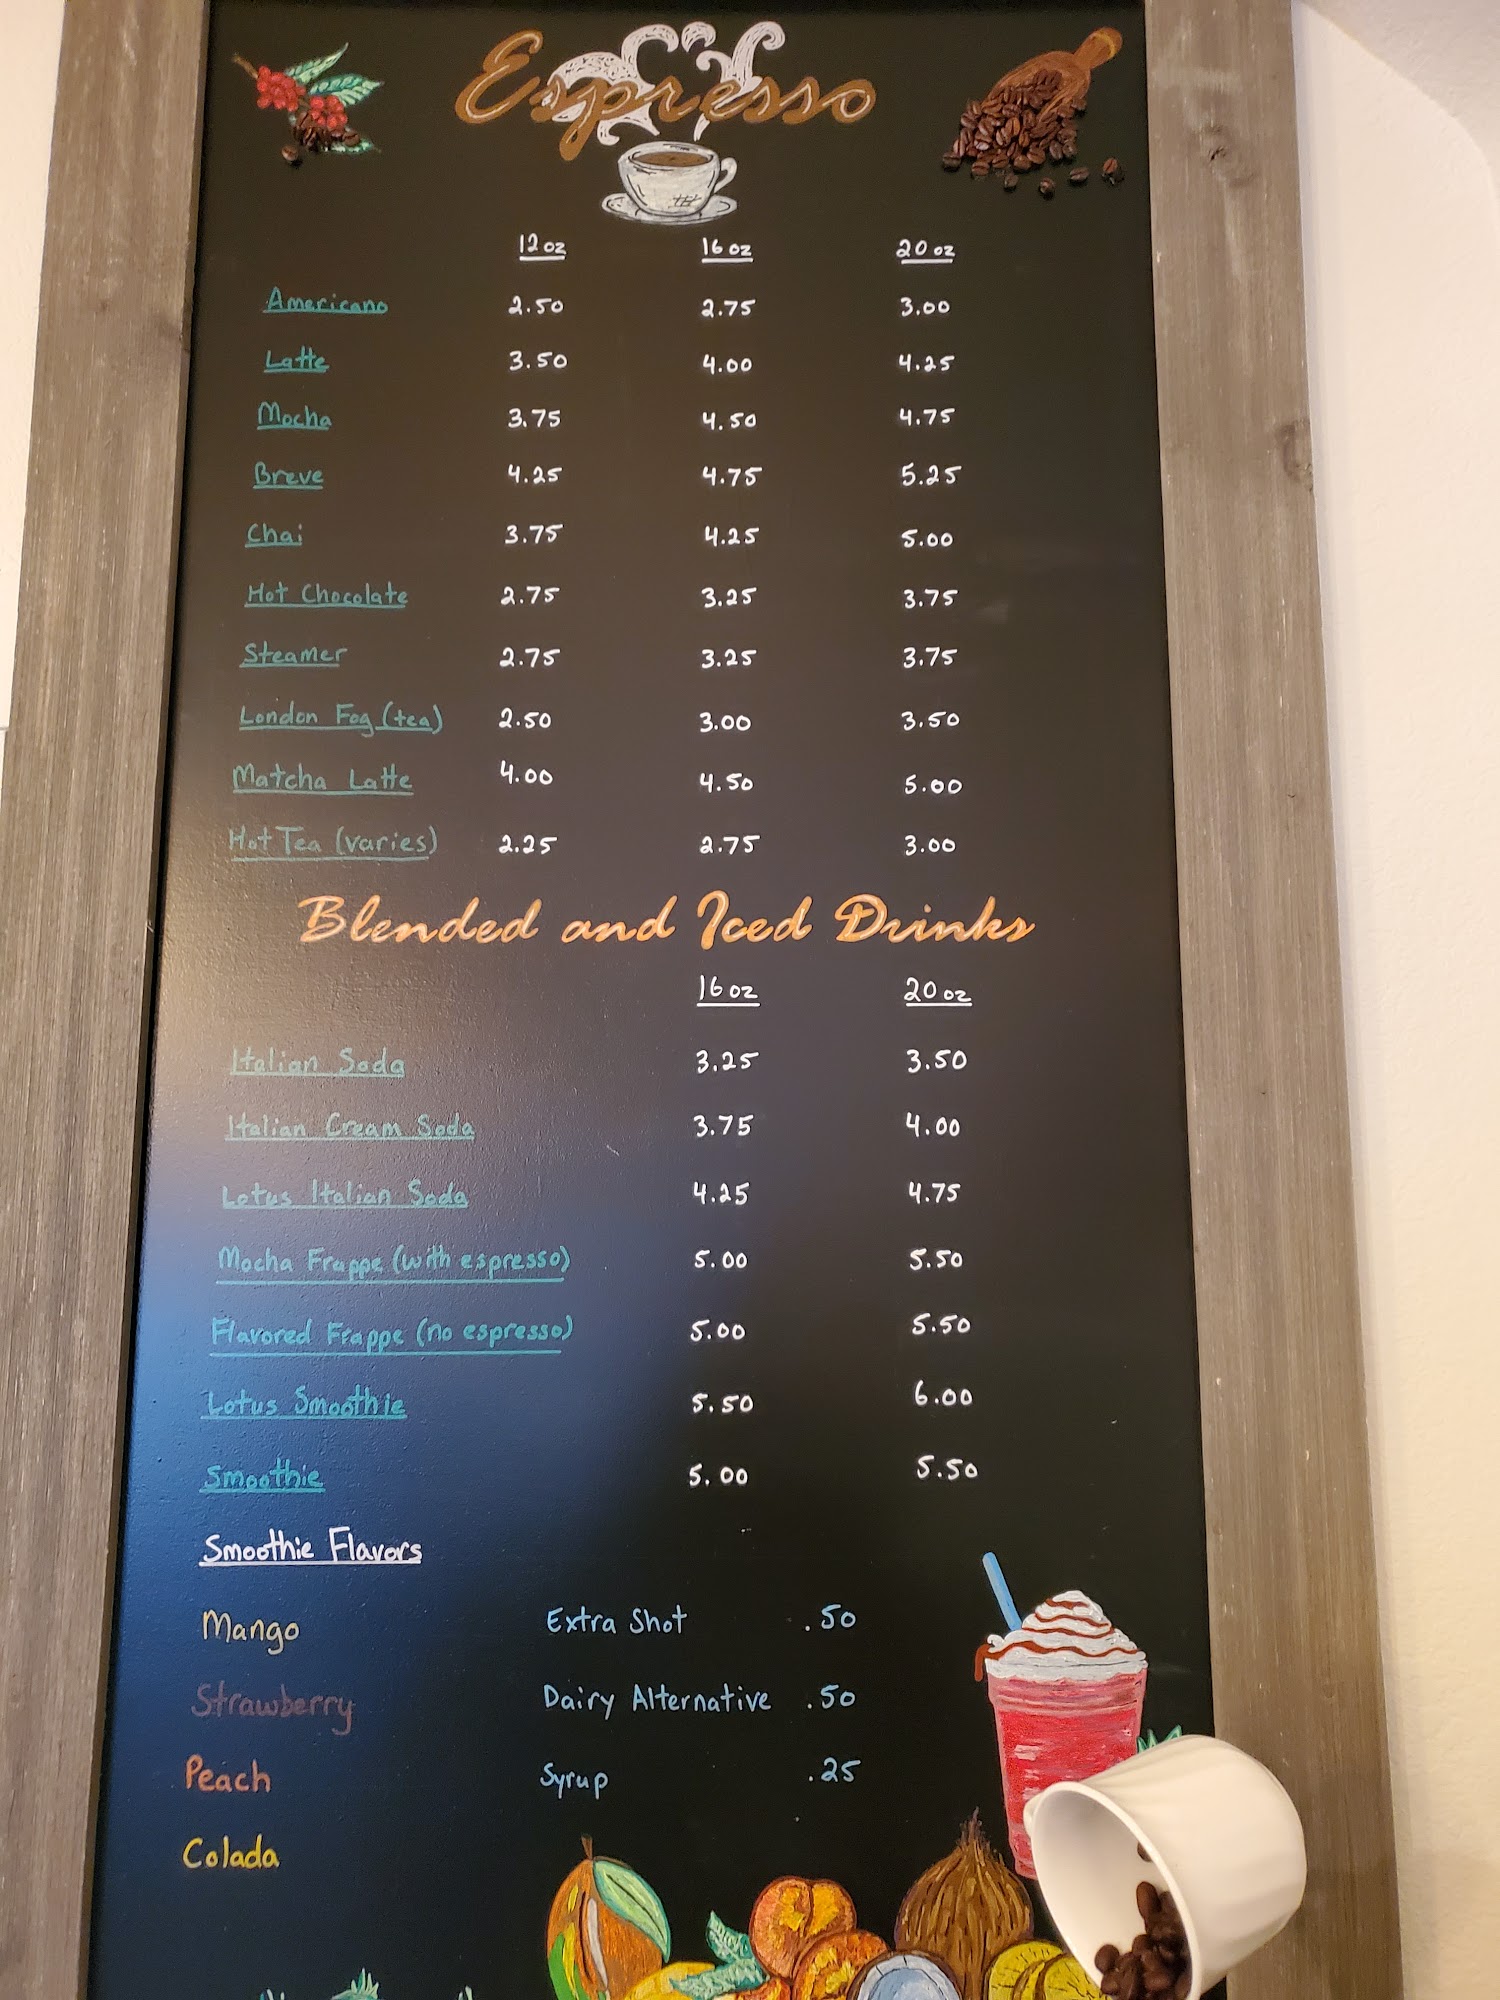 Espresso
12 oz 16 oz 20 oz
Americano 2.50 2.75 3.00
Latte 3.50 4.00 4.25
Mocha 3.75 4.50 4.75
Breve 4.25 4.75 5.25
Chai 3.75 4.25 5.00
Hot Chocolate 2.75 3.25 3.75
Steamer 2.75 3.25 3.75
London Fog (tea) 2.50 3.00 3.50
Matcha Latte 4.00 4.50 5.00
Hot Tea (varies) 2.25 2.75 3.00
Blended and Iced Drinks
16 oz 20 oz
Italian Soda 3.25 3.50
Italian Cream Soda 3.75 4.00
Lotus Italian Soda 4.25 4.75
Mocha Frappe (with espresso) 5.00 5.50
Flavored Frappe (no espresso) 5.00 5.50
Lotus Smoothie 5.50 6.00
Smoothie 5.00 5.50
Smoothie Flavors
Mango Extra Shot .50
Strawberry Dairy Alternative .50
Peach Syrup .25
Colada